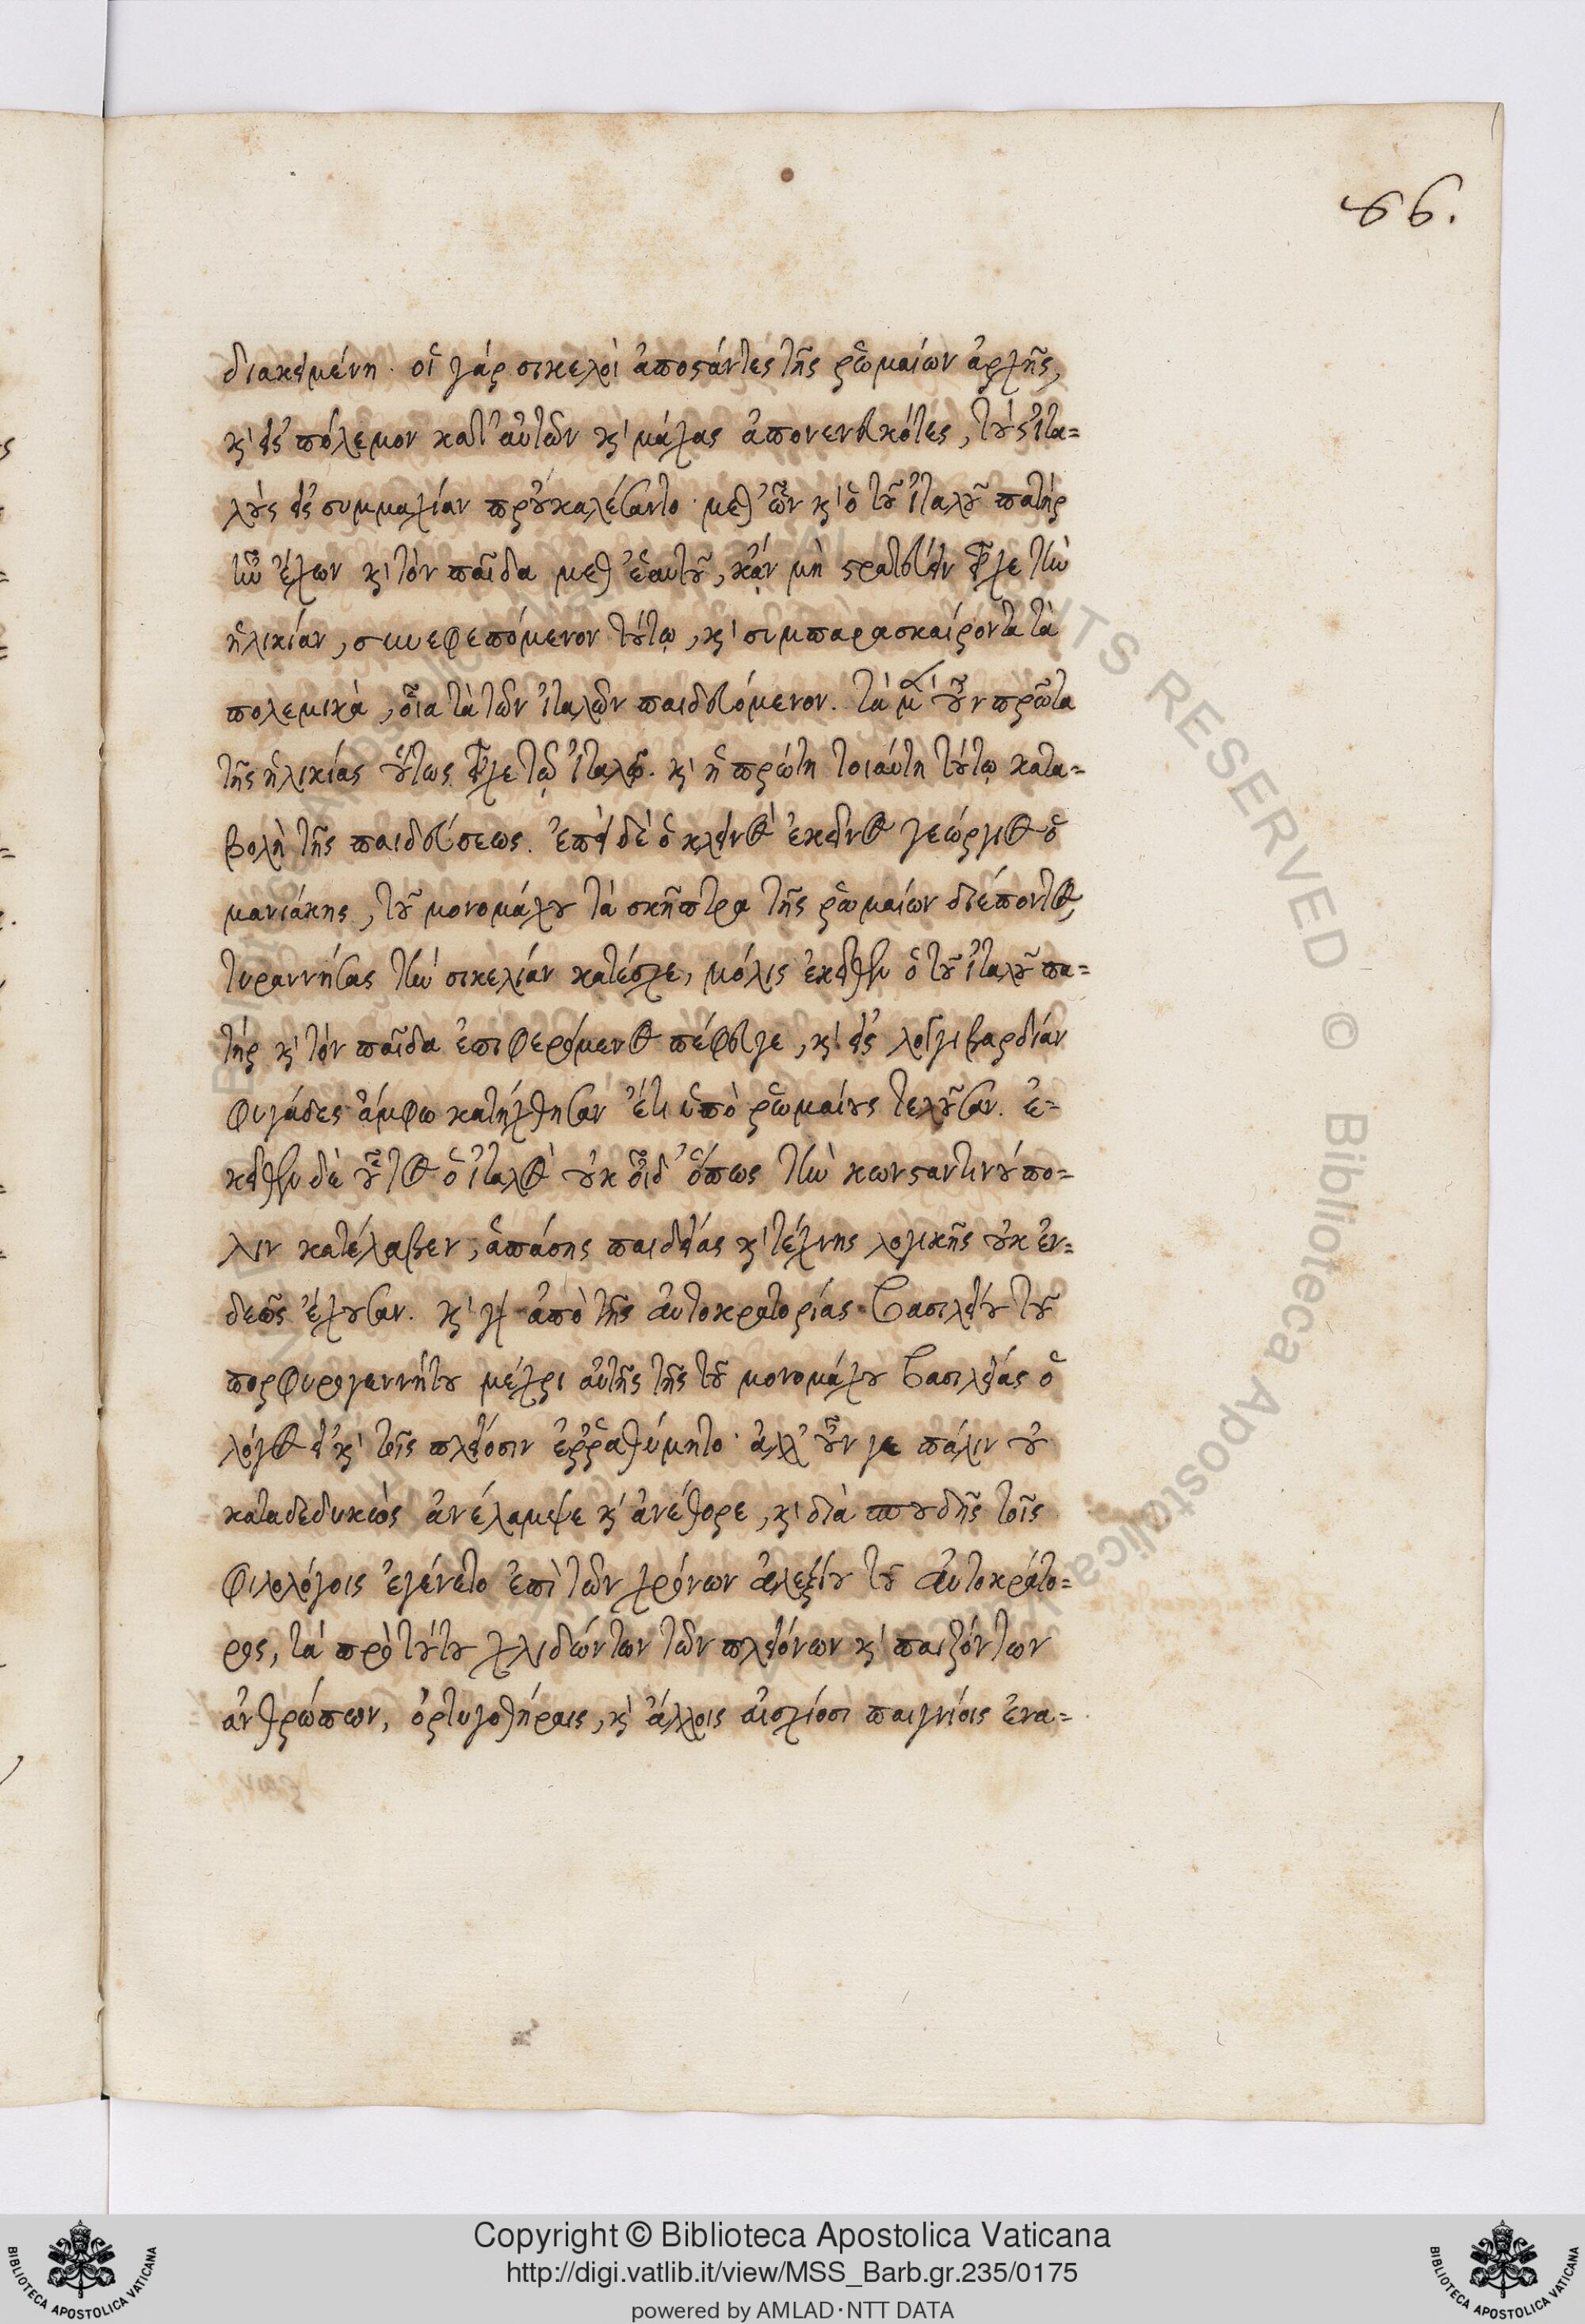 66.
διακειμένη· οἱ γάρ σικελοὶ ἀποστάντες τῆς ῥωμαίων ἀρχῆς,
κ' εἰς πόλεμον κατ' αὐτῶν κ' μάχας ἀπονενευκότες, τοὺς ἰτα=
λοὺς εἰς συμμαχίαν προὐκαλέσαντο· μεθ' ὧν κ' ὁ τοῦ ἰταλοῦ πατήρ
ἦν ἔχων κ' τὸν παῖδα μεθ' ἑαυτοῦ, κᾄν μὴ στρατεύειν εἶχε τὴν
ἡλικίαν, συνεφεπόμενον τούτῳ, κ' συμπαρασκαίροντα τὰ
πολεμικὰ, οἷα τὰ τῶν ἰταλῶν παιδευόμενον. τὰ μὲν οὖν πρῶτα
τῆς ἡλικίας οὕτως εἶχε τῷ ἰταλῷ. κ' ἡ πρώτη τοιαύτη τούτῳ κατα=
βολὴ τῆς παιδεύσεως. ἐπεὶ δὲ ὁ κλεινὸς ἐκεῖνος γεώργιος ὁ
μανιάκης, τοῦ μονομάχου τὰ σκῆπτρα τῆς ῥωμαίων διέποντος,
τυραννήσας τὴν σικελίαν κατέσχε, μόλις ἐκεῖθεν ὁ τοῦ ἰταλοῦ πα=
τήρ κ' τὸν παῖδα ἐπιφερόμενος πέφευγε, κ' εἰς λογγιβαρδίαν
φυγάδες ἄμφω κατήχθησαν ἔτι ὑπὸ ῥωμαίους τελοῦσαν. ἐ=
κεῖθεν δὲ οὗτος ὁ ἰταλὸς οὐκ οἶδ' ὅπως τὴν κωνσταντινούπο=
λιν κατέλαβεν, ἁπάσης παιδείας κ' τέχνης λογικῆς οὐκ ἐν=
δεῶς ἔχουσαν. κ' γὰρ ἀπὸ τῆς αὐτοκρατορίας βασιλείου τοῦ
πορφυρογεννήτου μέχρι αὐτῆς τῆς τοῦ μονομάχου βασιλείας ὁ
λόγος εἰ κ' τοῖς πλείοσιν ἐῤῥαθύμητο· ἀλλ' οὖν γε πάλιν οὐ
καταδεδυκὼς ἀνέλαμψε κ' ἀνέθορε, κ' διὰ σπουδῆς τοῖς
φιλολόγοις ἐγένετο ἐπὶ τῶν χρόνων ἀλεξίου τοῦ αὐτοκράτο=
ρος, τὰ πρὸ τούτου χλιδώντων τῶν πλειόνων κ' παιζόντων
ἀνθρώπων, ὀρτυγοθήραις, κ' ἄλλοις αἰσχίοσι παιγνίοις ἐνα=
BIBLIOTECA APOSTOLICA VATICANA
Copyright © Biblioteca Apostolica Vaticana
http://digi.vatlib.it/view/MSS_Barb.gr.235/0175
powered by AMLAD·NTT DATA
BIBLIOTECA APOSTOLICA VATICANA